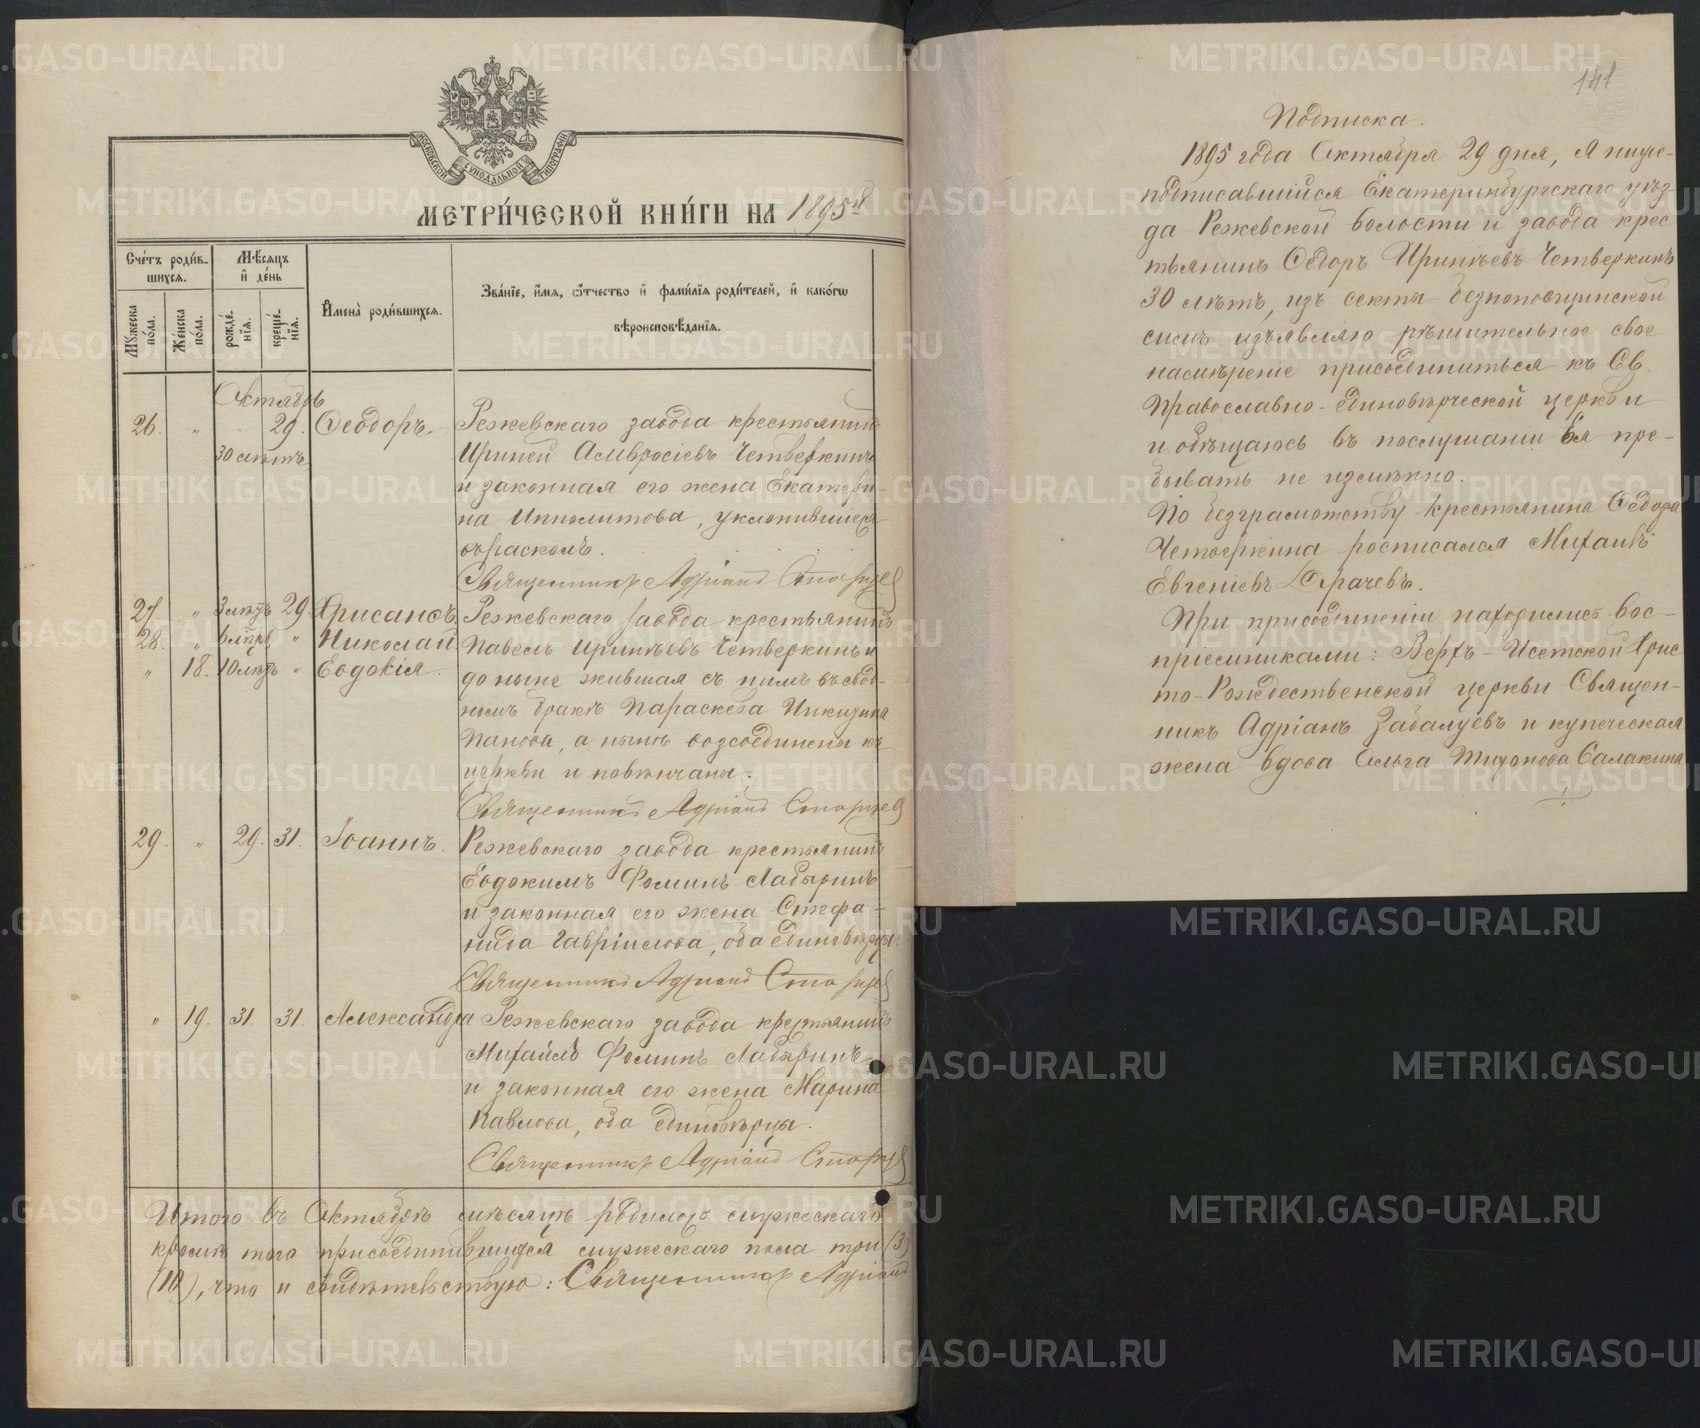 МОСКОВСКОЙ СУНОДАЛЬНОЙ ТИПОГРАФІИ
МЕТРИ́ЧЕСКОЙ КНИ́ГИ НА 1895й
Сче́тъ роди́в-
шихся.
Мѣ́сяцъ
и҆ де́нь
И҆мена̀ роди́вшихся.
Зва́нїе, и҆́мя, ѻ҆́тчество и҆ фами́лїѧ роди́телей, и҆ како́гѡ
вѣроисповѣ́данїѧ.
Мꙋ́жеска по́ла.
Же́нска по́ла.
рожде́нїѧ.
креще́нїѧ.
Октябрь
26. " 29. Ѳеодоръ. Режевскаго завода крестьянинъ
30 лѣтъ Ириней Амвросіевъ Четверкинъ
и законная его жена Екатери-
на Ипполитова, уклонившіеся
въ расколъ.
Священникъ Адріанъ
27. " 29. Хрисанѳъ Режевскаго завода крестьянинъ
28. " " Николай Павелъ Иринѣевъ Четверкинъ и
" 18. 10 лѣтъ " Евдокія. до ныне жившая съ нимъ въ свод-
номъ бракѣ Параскева Никизина
Панова, а нынѣ возсоединены къ
церкви и повѣнчаны.
Священникъ Адріанъ
29. " 29. 31. Іоаннъ. Режевскаго завода крестьянинъ
Евдокимъ Ѳоминъ Лабыринъ
и законная его жена Стефа-
нида Гавріилова, оба единовѣрцы.
Священникъ Адріанъ
" 19. 31. 31 Александра Режевскаго завода крестьянинъ
Михаилъ Ѳоминъ Лабыринъ
и законная его жена Марина
Павлова, оба единовѣрцы.
Священникъ Адріанъ
Итого въ Октябрѣ мѣсяцѣ родилось мужескаго
кромѣ того присоединившихся мужескаго пола три (3)
(10), что и свидѣтельствую: Священникъ Адріанъ
141
Подписка.
1895 года Октября 29 дня, Я ниже-
подписавшійся Екатеринбургскаго уѣз
да Режевской волости и завода крес
тьянинъ Ѳедоръ Иринѣевъ Четверкинъ
30 лѣтъ, изъ секты безпоповщинской
симъ изъявляю рѣшительное свое
намѣреніе присоединиться къ Св.
Православно-единовѣрческой церкви
и обѣщаюсь въ послушаніи Ея пре-
бывать не измѣнно.
По безграмотству крестьянина Ѳедора
Четверкина росписался Михаилъ
Евгеніевъ
При присоединеніи находились вос-
пріемниками: Верхъ-Исетской Хрис
то-Рождественской церкви Священ-
никъ Адріанъ Забалуевъ и купеческая
жена вдова Ольга Тихонова Балакина
METRIKI.GASO-URAL.RU